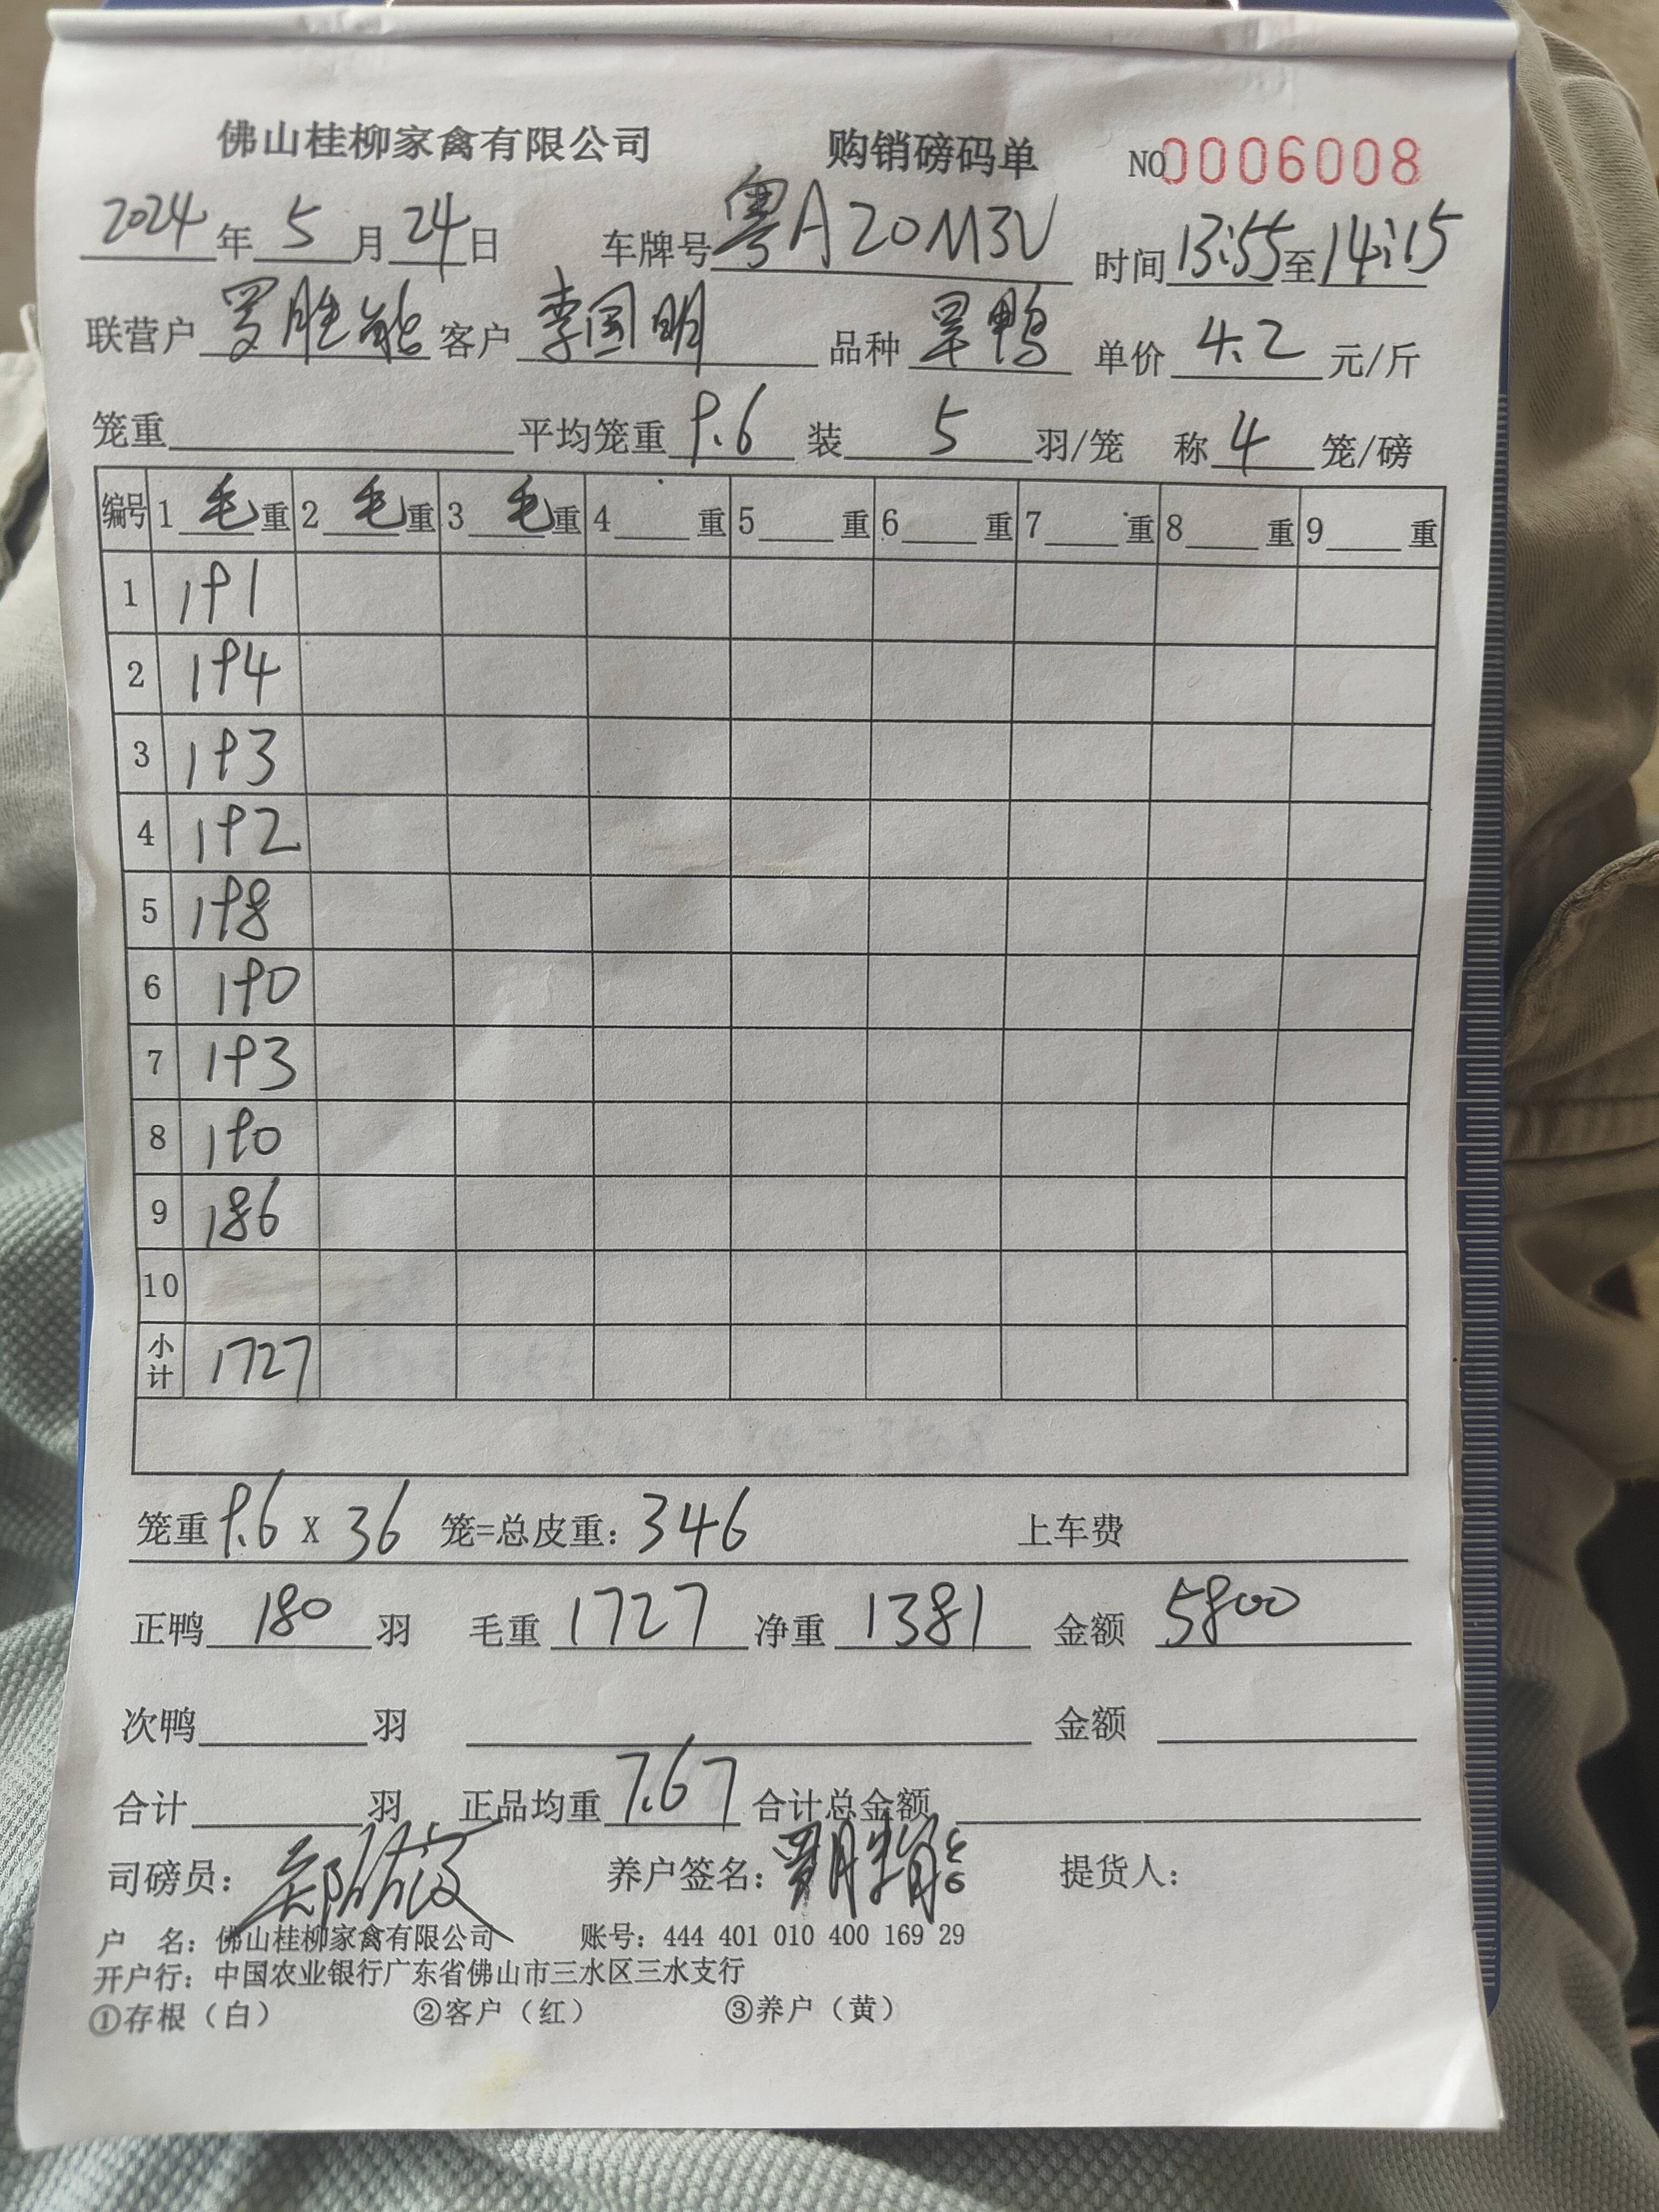 佛山桂柳家禽有限公司 购销磅码单 NO0006008
2024年5月24日 车牌号粤A20M3V 时间13:55至14:15
联营户罗胜能 客户李国明 品种旱鸭 单价4.2元/斤
笼重 平均笼重9.6 装5羽/笼 称4笼/磅
编号 1毛重 2毛重 3毛重 4重 5重 6重 7重 8重 9重
1 191
2 194
3 193
4 192
5 198
6 190
7 193
8 190
9 186
10
小计 1727
笼重9.6X36 笼=总皮重：346 上车费
正鸭180羽 毛重1727 净重1381 金额5800
次鸭 羽 金额
合计 羽 正品均重7.67 合计总金额
司磅员： 养户签名：罗胜能 提货人：
户 名：佛山桂柳家禽有限公司 账号：444 401 010 400 169 29
开户行：中国农业银行广东省佛山市三水区三水支行
①存根（白） ②客户（红） ③养户（黄）